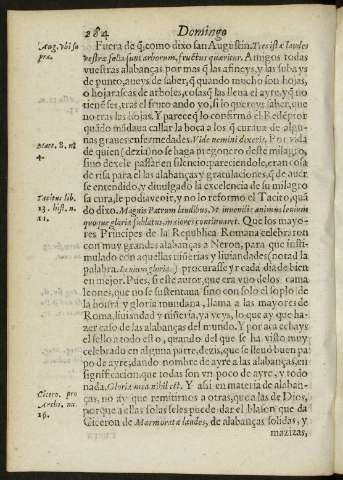 284 Domingo
Aug. vbi su
pra.
Fuera de q̃, como dixo san Augustin. Tres istæ laudes
vestræ folia sunt arborum, fructus quæritur. Amigos todas
vuestras alabanças por mas q̃ las afineys, y las subays
de punto, aueys de saber, q̃ quando mucho son hojas,
o hojarascas de arboles, cosas q̃ las lleua el ayre, y q̃ no
tiene ses, tras el fruto ando yo, si lo quereys saber, que
no tras las hojas. Y parece q̃ lo confirmó el Redẽptor
quãdo mãdaua callar la boca a los q̃ curaua de algu-
nas graues enfermedades. Vide nemini dixeris. Por vida
Matt. 8. nu
4.
de quien (dezia) no se haga pregonero deste milagro,
sino dexele passar en silencio: pareciendole, eran cosa
de risa para el las alabanças y gratulaciones, q̃ de auer
se entendido, y diuulgado la excelencia de su milagro
Tacitus lib.
13. hist. n.
11.
sa cura, le podia venir, y no lo reformo el Tacito, quã
do dixo. Magnis Patrum laudibus, vt iuuenilis animus leuium
quoque gloria sublatus, maiores continuaret. Que los mayo-
res Principes de la Republica Romana celebraron
con muy grandes alabanças a Neron, para que susti-
mulado con aquellas niñerias y liuiandades (notad la
palabra. Leuium gloria.) procurasse yr cada dia de bien
en mejor. Pues, si este autor, que era vno de los cama
leones, que no se sustentaua sino con solo el soplo de
la honra y gloria mundana, llama a las mayores de
Roma, liuiandad y niñeria, ya veys, lo que ay que ha-
zer caso de las alabanças del mundo. Y por aca echays
el sello a todo esto, quando del que se ha visto muy
celebrado en alguna parte, dezis, que se lleuó buen pa
po de ayre, dando nombre de ayre a las alabanças, en
significacion, que todas son vn poco de ayre, y todo
nada. Gloria mea nihil est. Y assi en materia de alaban-
Cicero. pro
Archi. nu.
16.
ças, no ay que remitirnos a otras, que a las de Dios,
porque a ellas solas se les puede dar el blason que da
Ciceron de Marmoratæ laudes, de alabanças solidas, y
mazizas,